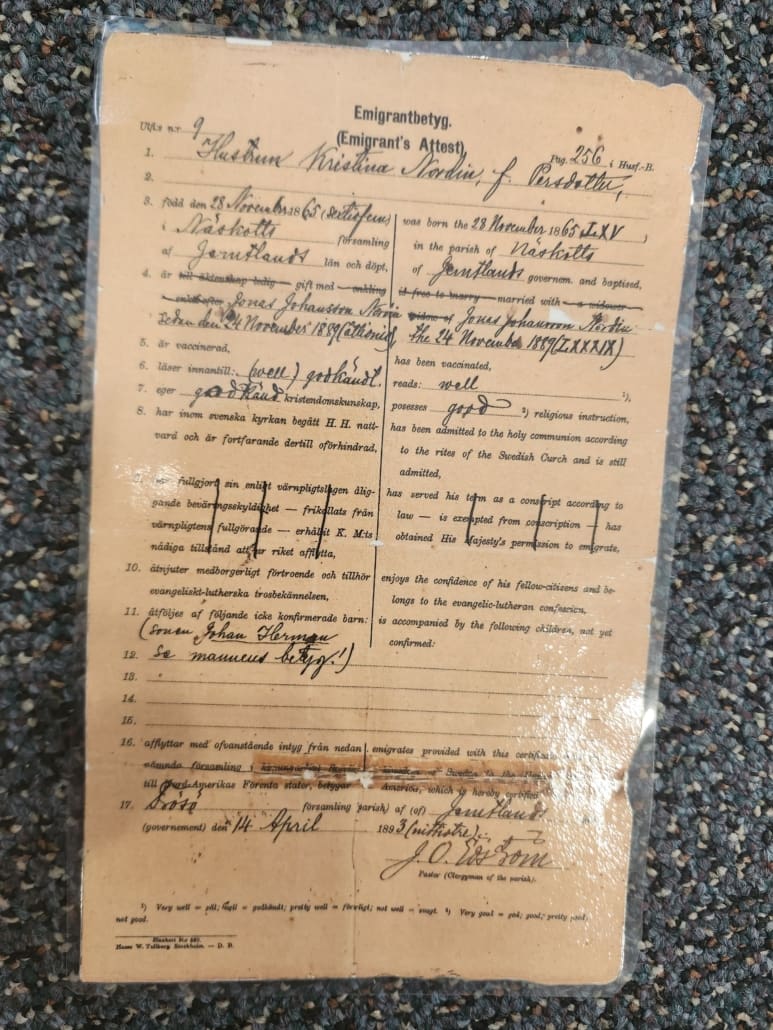 Emigrantbetyg.
(Emigrant's Attest)
Utfl:s n:r 9
Pag. 256 i Husf.-B.
1. Hustrun Kristina Nordin, f. Persdotter,
2.
3. född den 28 November 1865 (sextiofem)
i Näskotts församling
af Jemtlands län och döpt,
4. är till äktenskap ledig — gift med — enkling
enka efter Jonas Johansson Nordin
sedan den 24 November 1889 (åttionio)
5. är vaccinerad,
6. läser innantill: (well) godkändt.
7. eger godkänd kristendomskunskap,
8. har inom svenska kyrkan begått H. H. natt-
vard och är fortfarande dertill oförhindrad,
9. har fullgjort sin enligt värnpligtslagen ålig-
gande beväringsskyldighet — frikallats från
värnpligtens fullgörande — erhållit K. M:ts
nådiga tillstånd att ur riket afflytta,
10. åtnjuter medborgerligt förtroende och tillhör
evangeliskt-lutherska trosbekännelsen,
11. åtföljes af följande icke konfirmerade barn:
(sonen Johan Herman
12. se mannens betyg!)
13.
14.
15.
16. afflyttar med ofvanstående intyg från nedan
nämnda församling i
till Nord-Amerikas Förenta stater, betygar
was born the 28 November 1865 LXV,
in the parish of Näskotts
of Jemtlands governem. and baptised,
is free to marry — married with — a widower
widow of Jonas Johansson Nordin
the 24 November 1889 (LXXXIX)
has been vaccinated,
reads: well ¹),
posesses good ²) religious instruction,
has been admitted to the holy communion according
to the rites of the Swedish Curch and is still
admitted,
has served his term as a conscript according to
law — is exempted from conscription — has
obtained His Majesty's permission to emigrate,
enjoys the confidence of his fellow-citizens and be-
longs to the evangelic-lutheran confession,
is accompanied by the following children, not yet
confirmed:
emigrates provided with this certificate
of Sweden to the
America, which is hereby certified
17. Frösö församling (parish) af (of) Jemtlands
(governement) den 14 April 1893 (nittiotre).
J. O. Edstrom
Pastor (Clergyman of the parish).
¹) Very well = väl; well = godkändt; pretty well = försvarligt; not well = svagt. ²) Very good = god; good; pretty good;
not good.
Blankett N:o
Hasse W. Tullberg Stockholm. — D. B.